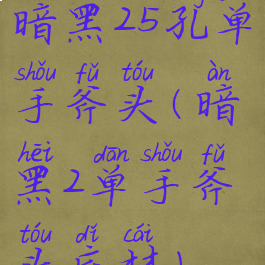 暗黑25孔单
shǒu fǔ tóu àn
手斧头(暗
hēi dān shǒu fǔ
黑2单手斧
tóu dǐ cái
头底材)